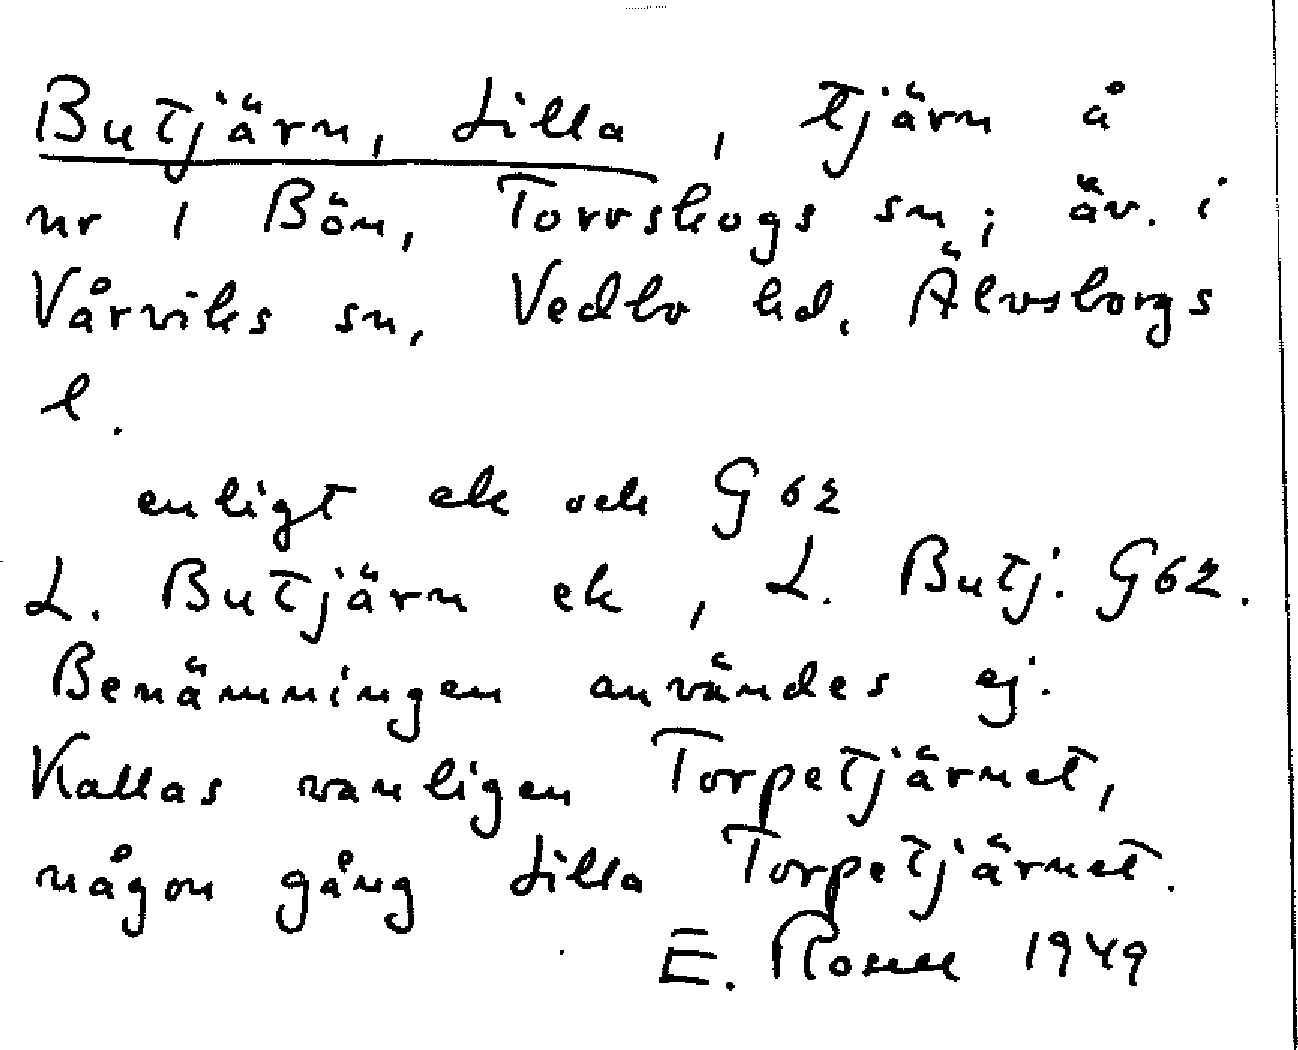 Butjärn, Lilla, tjärn å
nr 1 Bön, Torrskogs sn; äv. i
Vårviks sn, Vedbo hd, Älvsborgs
l.
enligt ek och G62
L. Butjärn ek, L. Butj. G62.
Benämningen användes ej.
Kallas vanligen Torpetjärnet,
någon gång Lilla Torpetjärnet.
E. 1949